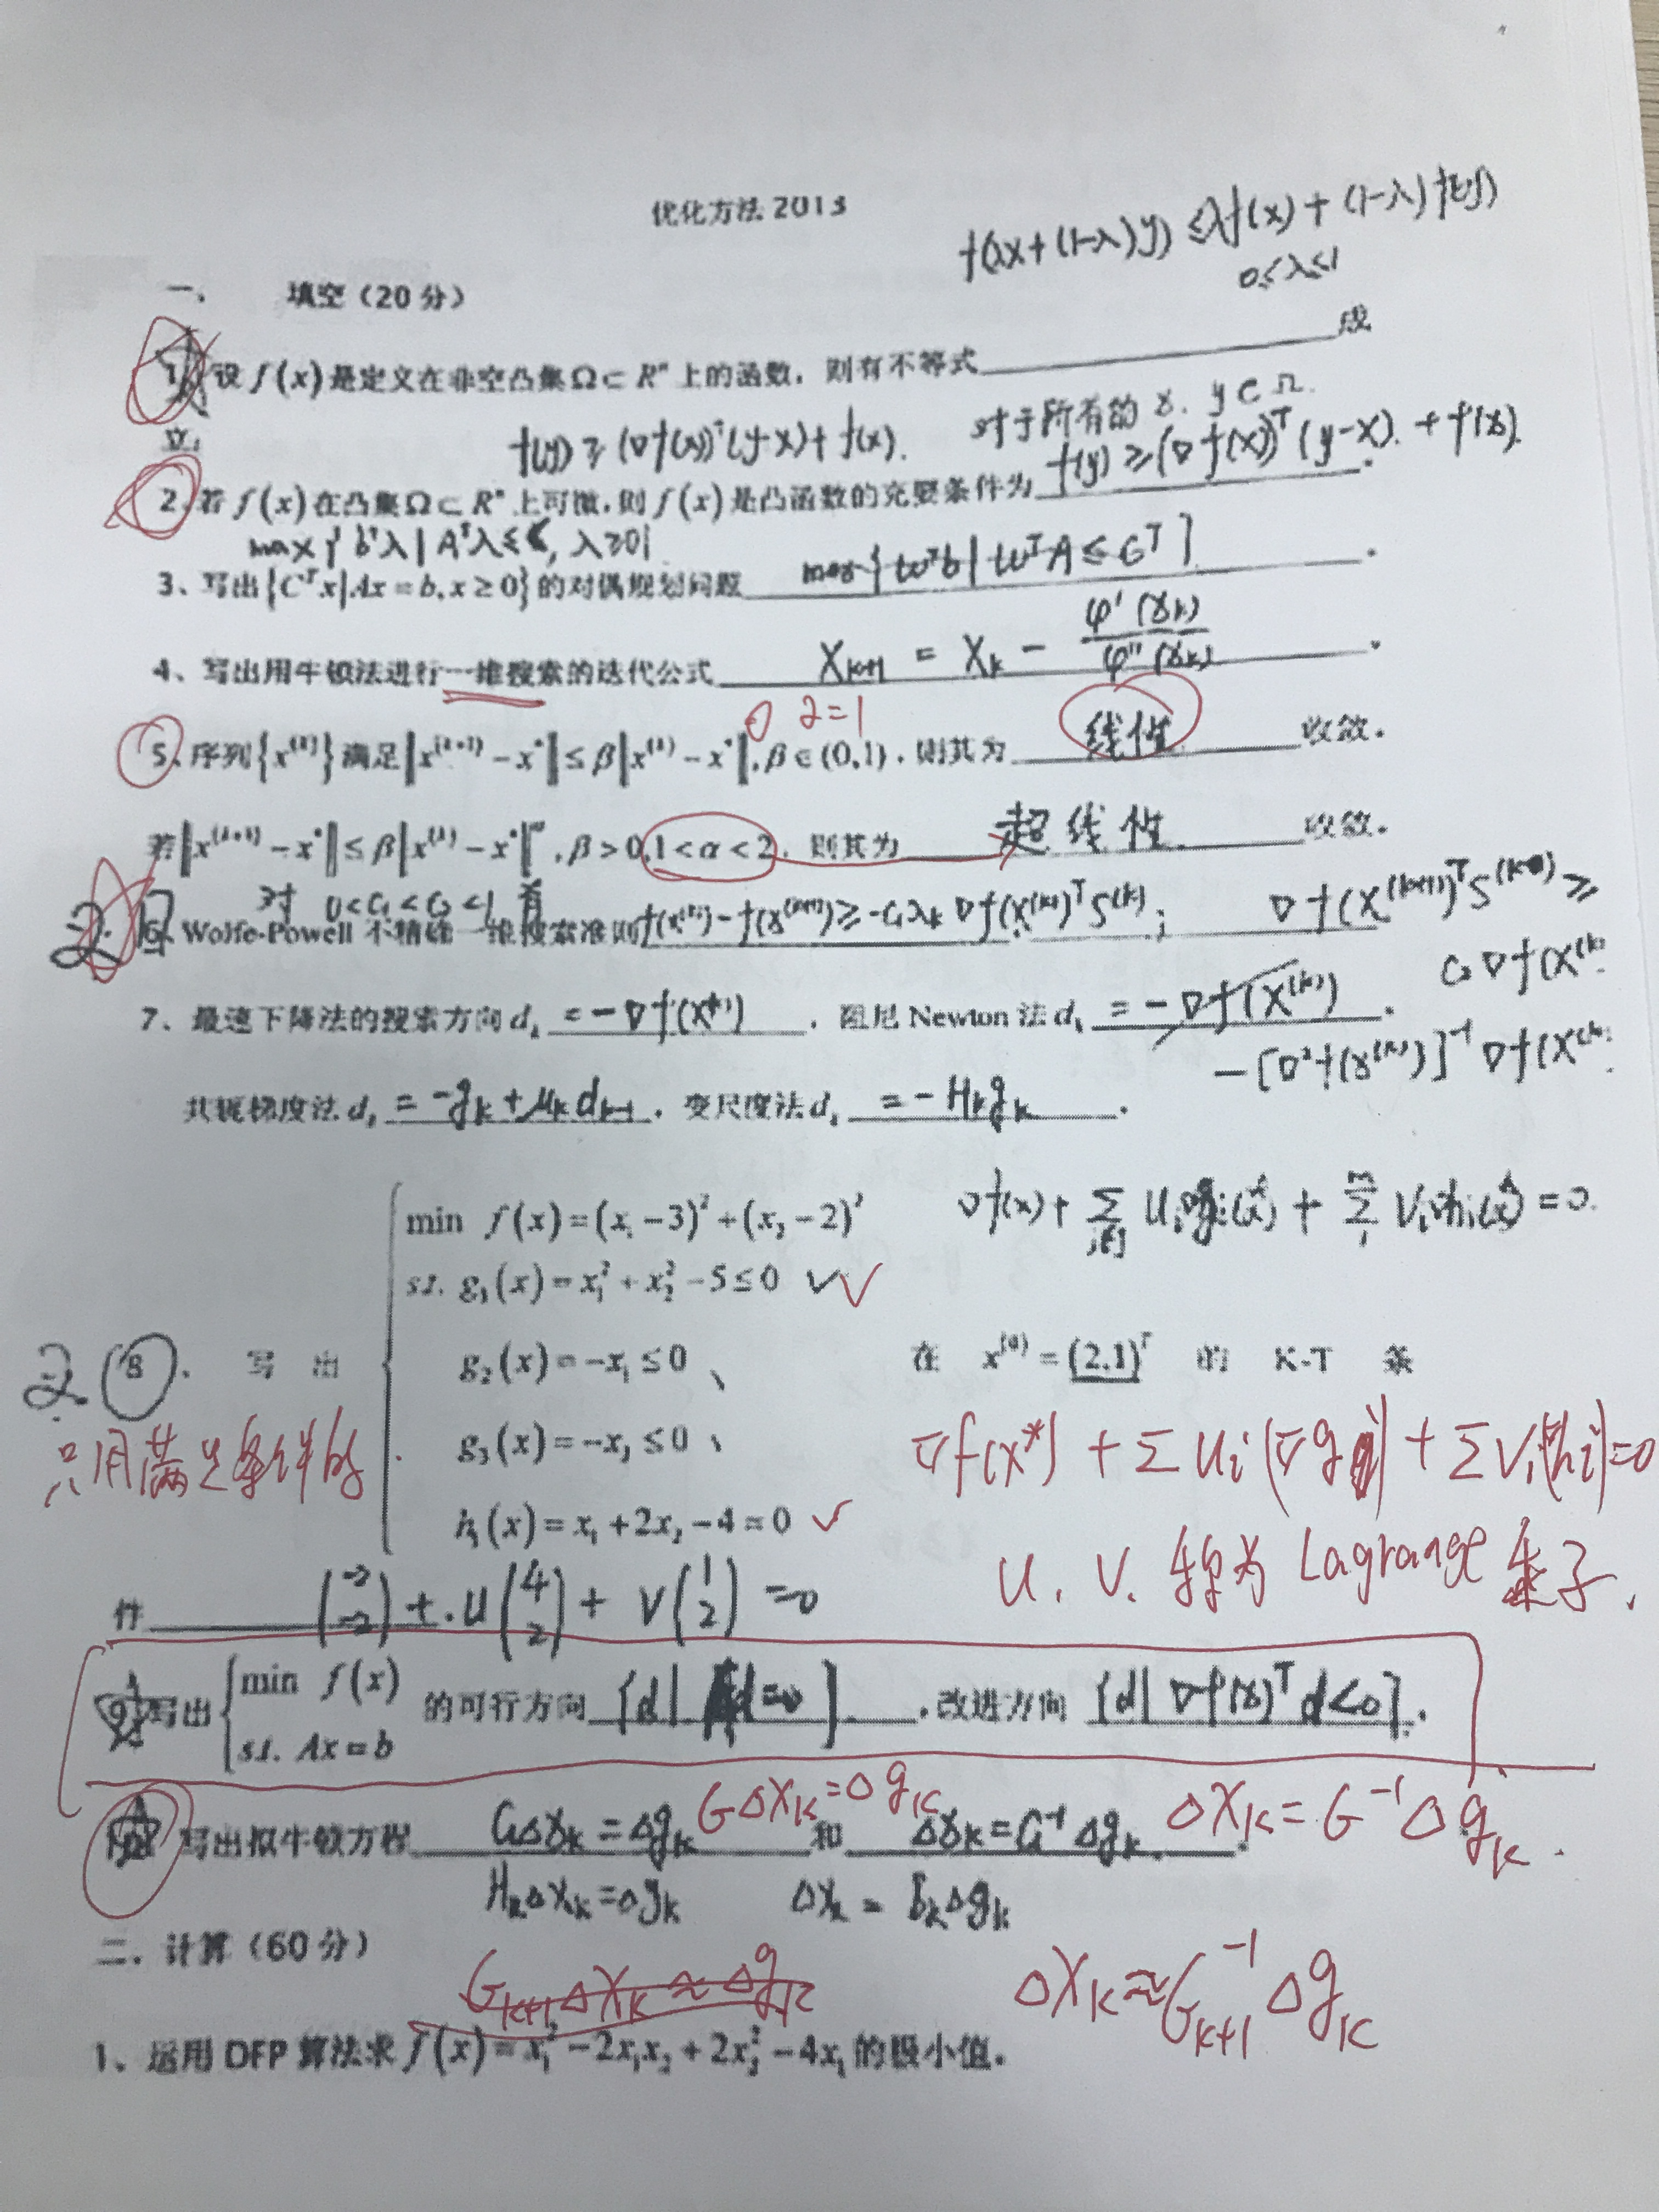 优化方法 2013
f(λx+(1-λ)y) ≤ λf(x) + (1-λ)f(y)
0≤λ≤1
一、 填空（20 分）
1、设 f(x) 是定义在非空凸集 Ω⊂Rⁿ 上的函数，则有不等式____成
立。
对于所有的 x. y⊂Ω.
f(y) ≥ (∇f(x))ᵀ(y-x)+f(x).
2、若 f(x) 在凸集 Ω⊂Rⁿ 上可微，则 f(x) 是凸函数的充要条件为 f(y) ≥ (∇f(x))ᵀ(y-x). + f(x).
max { bᵀλ | Aᵀλ≤C, λ≥0}
3、写出{Cᵀx|Ax=b,x≥0}的对偶规划问题 max{wᵀb | wᵀA ≤ Cᵀ}.
4、写出用牛顿法进行一维搜索的迭代公式 X_{k+1} = X_k - φ'(x_k)/φ''(x_k).
2=1
5、序列{x^(k)}满足‖x^(k+1) - x*‖≤β‖x^(k) - x*‖, β∈(0,1)，则其为 线性 收敛。
若‖x^(k+1) - x*‖≤β‖x^(k) - x*‖^α, β>0, 1<α<2，则其为 超线性 收敛。
对 0<C₁<C₂<1 有
2. 6、Wolfe-Powell 不精确一维搜索准则 f(x^(k)) - f(x^(k+1)) ≥ -C₁λ_k∇f(x^(k))ᵀS^(k); ∇f(x^(k+1))ᵀS^(k) ≥
C₂∇f(x^(k)
7、最速下降法的搜索方向 d_k = -∇f(x^(k))，阻尼 Newton 法 d_k = -∇f(x^(k)).
-[∇²f(x^(k))]⁻¹∇f(x^(k)
共轭梯度法 d_k = -g_k + μ_k d_{k-1}. 变尺度法 d_k = -H_k g_k.
∇f(x)+ Σ u_i∇g_i(x) + Σ v_i∇h_i(x) = 0.
min f(x)=(x₁-3)²+(x₂-2)²
s.t. g₁(x)=x₁²+x₂²-5≤0 ✓✓
g₂(x)=-x₁≤0 、
2. 8、写出 在 x^(0)=(2,1)ᵀ 的 K-T 条
g₃(x)=-x₂≤0 、
只用满足条件的.
∇f(x*) + Σ u_i(∇g_i) + Σ v_i(h_i)=0
h₁(x)=x₁+2x₂-4=0 ✓
u, v. 称为 Lagrange 乘子.
件 (-2 -2) + u(4 2) + v(1 2) = 0
9、写出 { min f(x) s.t. Ax=b 的可行方向 {d| Ad=0}，改进方向 {d| ∇f(x)ᵀd<0}.
10、写出拟牛顿方程 GΔx_k = Δg_k 和 Δx_k = G⁻¹Δg_k.
GΔX_k=Δg_k ΔX_k=G⁻¹Δg_k.
H_kΔx_k=Δg_k Δx_k = B_kΔg_k
二、计算（60 分）
G_{k+1}ΔX_k≈Δg_k ΔX_k≈G_{k+1}⁻¹Δg_k
1、运用 DFP 算法求 f(x)=x₁²-2x₁x₂+2x₂²-4x₁ 的极小值。